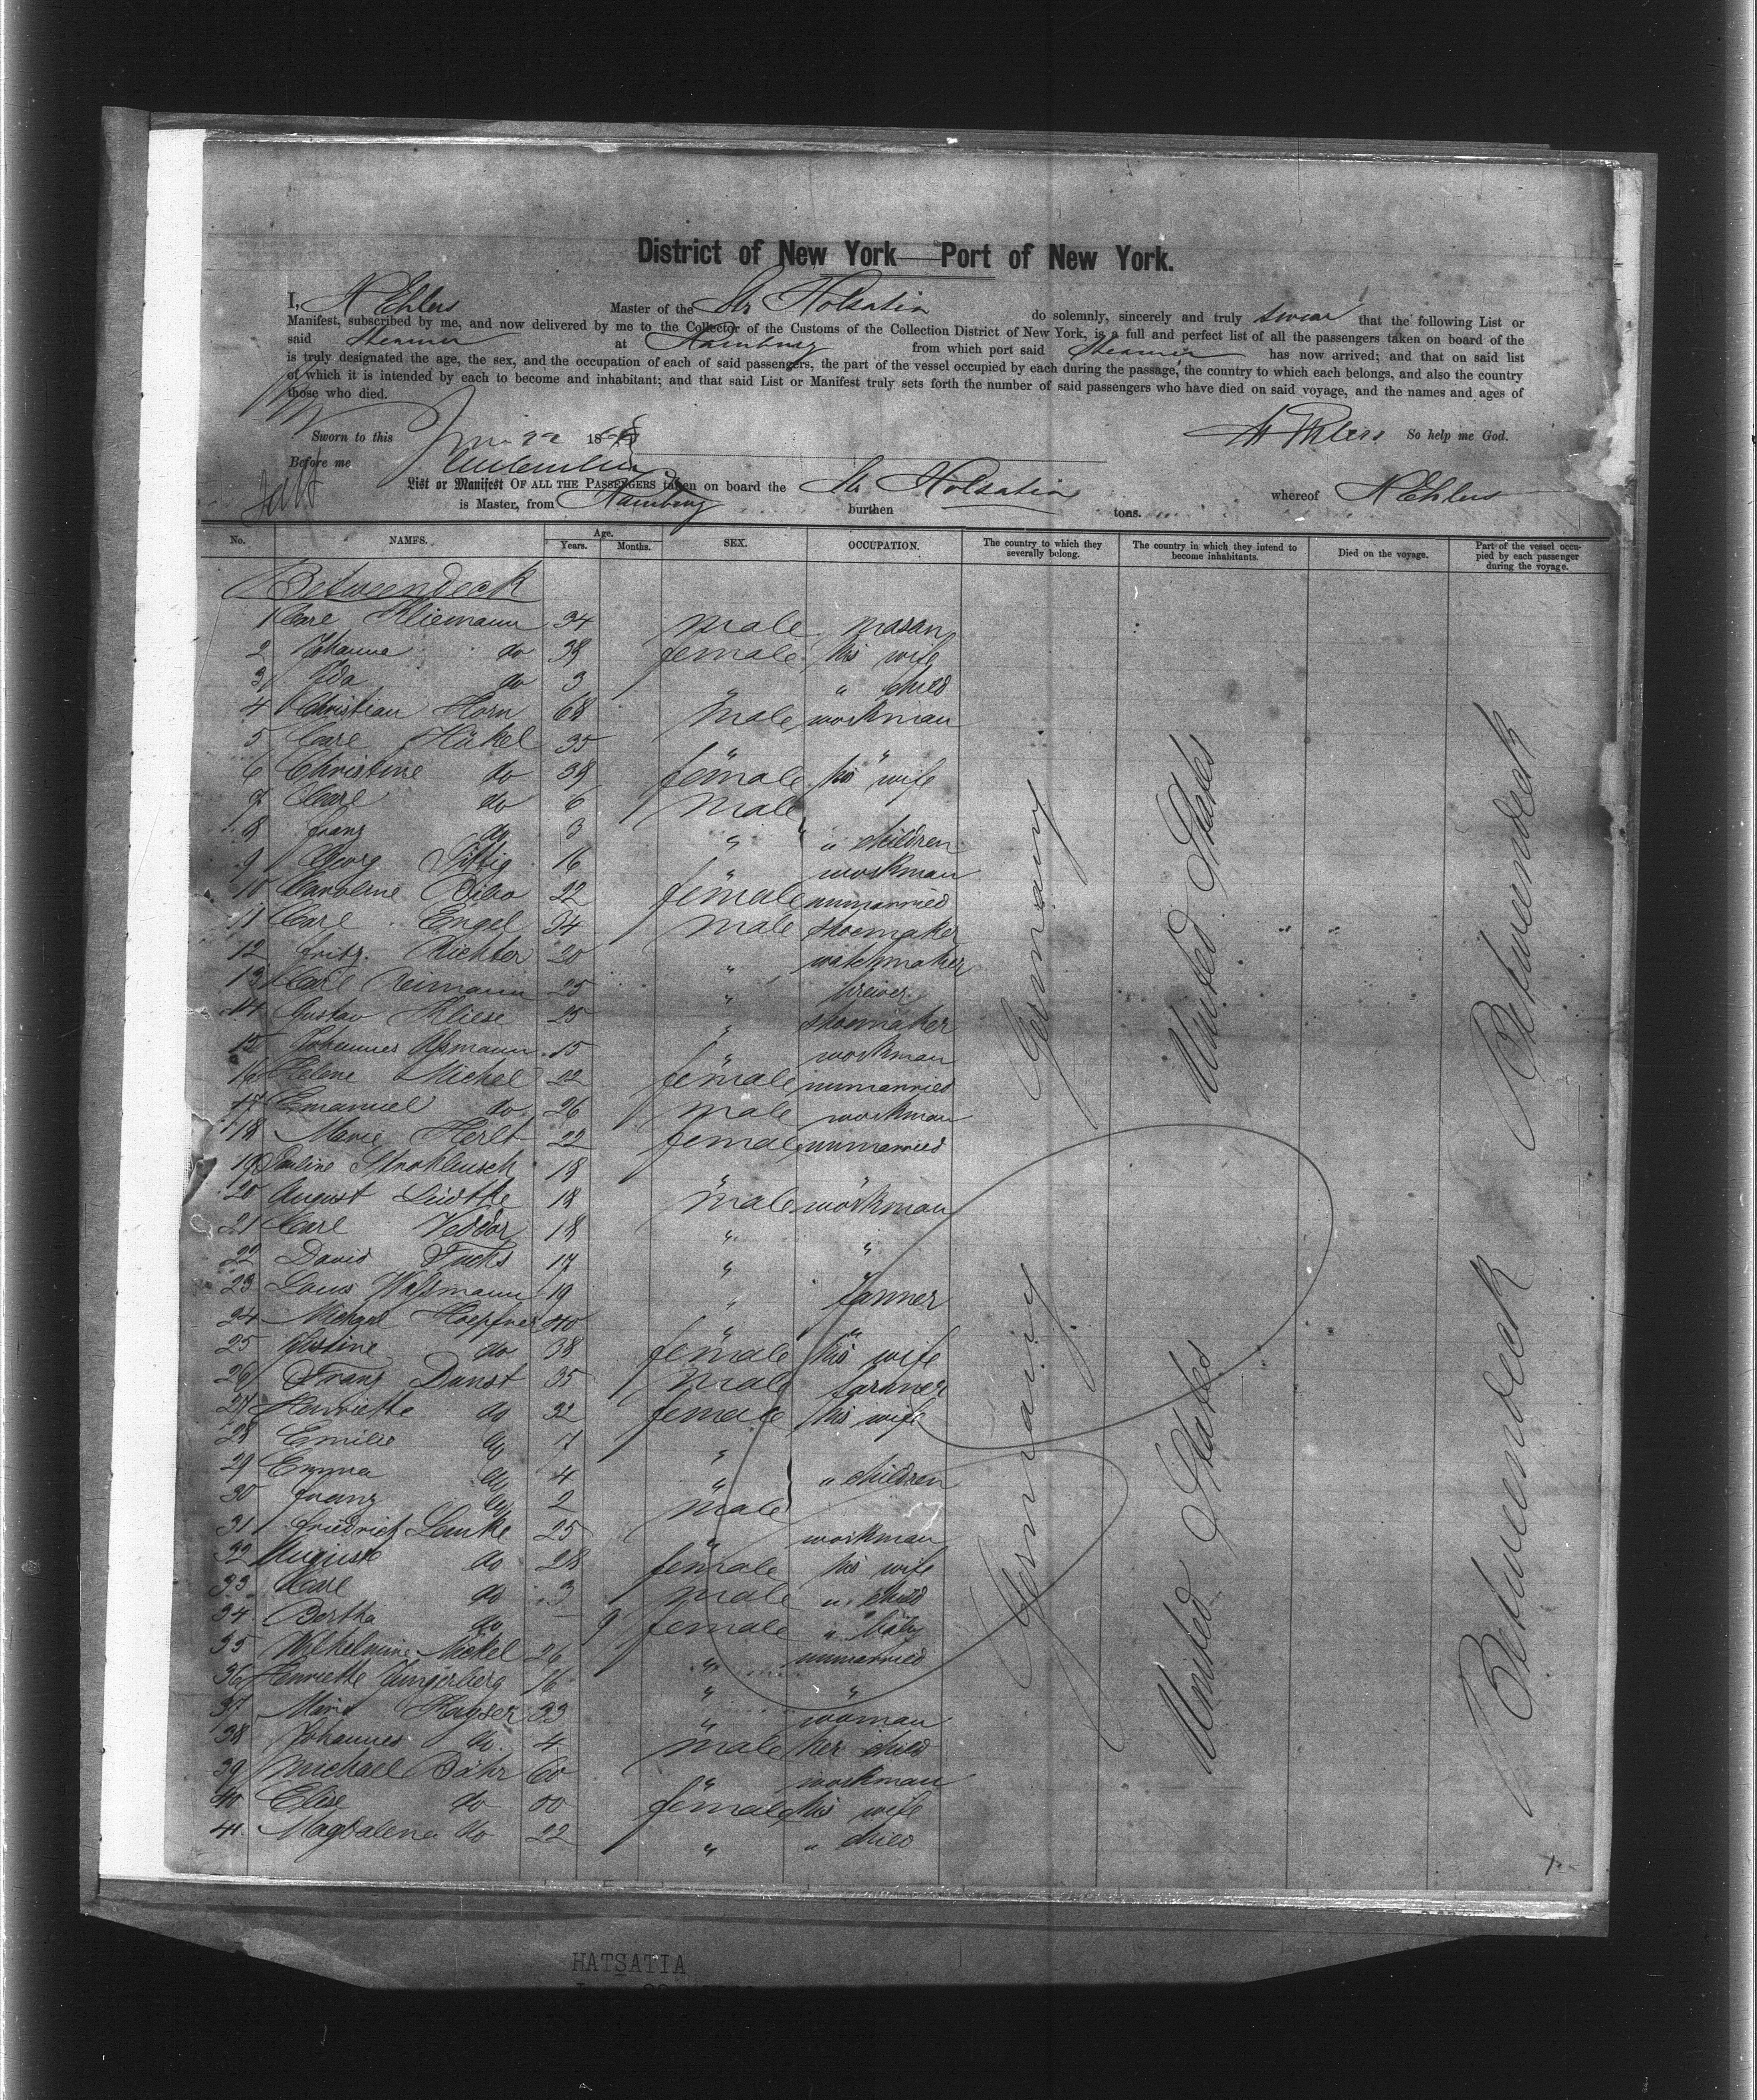 District of New York—Port of New York.
I, N Ehlers Master of the Str Holsatia do solemnly, sincerely and truly swear that the following List or
Manifest, subscribed by me, and now delivered by me to the Collector of the Customs of the Collection District of New York, is a full and perfect list of all the passengers taken on board of the
said Steamer at Hamburg from which port said Steamer has now arrived; and that on said list
is truly designated the age, the sex, and the occupation of each of said passengers, the part of the vessel occupied by each during the passage, the country to which each belongs, and also the country
of which it is intended by each to become and inhabitant; and that said List or Manifest truly sets forth the number of said passengers who have died on said voyage, and the names and ages of
those who died.
Sworn to this 22 18 N Ehlers So help me God.
Before me
List or Manifest OF ALL THE PASSENGERS taken on board the Str Holsatia whereof N Ehlers
is Master, from Hamburg burthen tons.
No. NAMES. Age. Years. Months. SEX. OCCUPATION. The country to which they severally belong. The country in which they intend to become inhabitants. Died on the voyage. Part of the vessel occupied by each passenger during the voyage.
Betweendeck
1 Carl Kliemann 34 male mason
2 Johanne do 38 female his wife
3 Ida do 3 " " child
4 Christian Horn 68 male workman
5 Carl Häkel 35 " "
6 Christine do 38 female his wife
7 Carl do 6 male
8 Franz do 3 " " children
9 Georg 16 " workman
10 Caroline 22 female unmarried
11 Carl Engel 34 male shoemaker
12 Fritz Richter 20 " watchmaker
13 Carl Reimann 25 " brewer
14 Gustav Kliese 25 " shoemaker
15 Johannes Assmann 15 " workman
16 Helene Michel 22 female unmarried
17 Emanuel do 26 male workman
18 Marie Herlt 22 female unmarried
19 Pauline 18 " "
20 August Lüdtke 18 male workman
21 Carl Veddor 18 " "
22 David Fuchs 17 " "
23 Louis Wassmann 19 " farmer
24 Michael Hoepfner 40 " "
25 Justine do 38 female his wife
26 Franz Dunst 35 male farmer
27 Henriette do 32 female his wife
28 Emilie do 7 "
29 Emma do 4 " " children
30 Franz do 2 male
31 Friedrich Lemke 25 " workman
32 Auguste do 28 female his wife
33 Carl do 3 male " child
34 Bertha do — 9 female " baby
35 Wilhelmine Nickel 26 " unmarried
36 Henriette Jungerberg 16 " "
37 Marie Kayser 33 " woman
38 Johannes do 4 male her child
39 Michael Bähr 60 " workman
40 Elise do female his wife
41 Magdalena do 22 " " child
Germany
United States
Betweendeck
Germany
United States
Betweendeck
1
HATSATIA